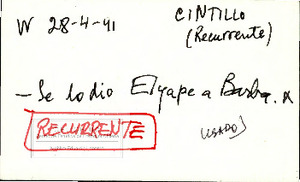 W 28-4-41
CINTILLO
(Recurrente)
- Se lo dio Elyape a
RECURRENTE
USADO